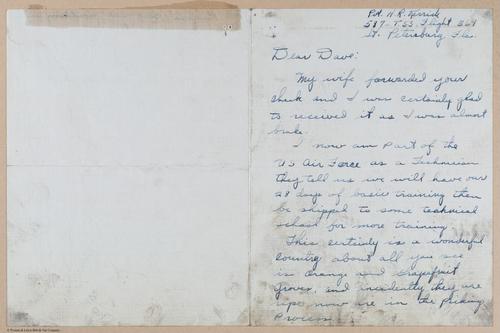 Pvt. H. R. Herrick
587-TSS. Flight 369
St. Petersburg Fla.
Dear Dave:
My wife forwarded your
check and I was certainly glad
to received it as I was almost
broke.
I now am part of the
US Air Force as a Technician
they tell us we will have our
28 days of basic training then
be shipped to some technical
school for more training
This certainly is a wonderful
country about all you see
is orange and grapefruit
groves, and incidently they are
ripe now are in the picking
process.